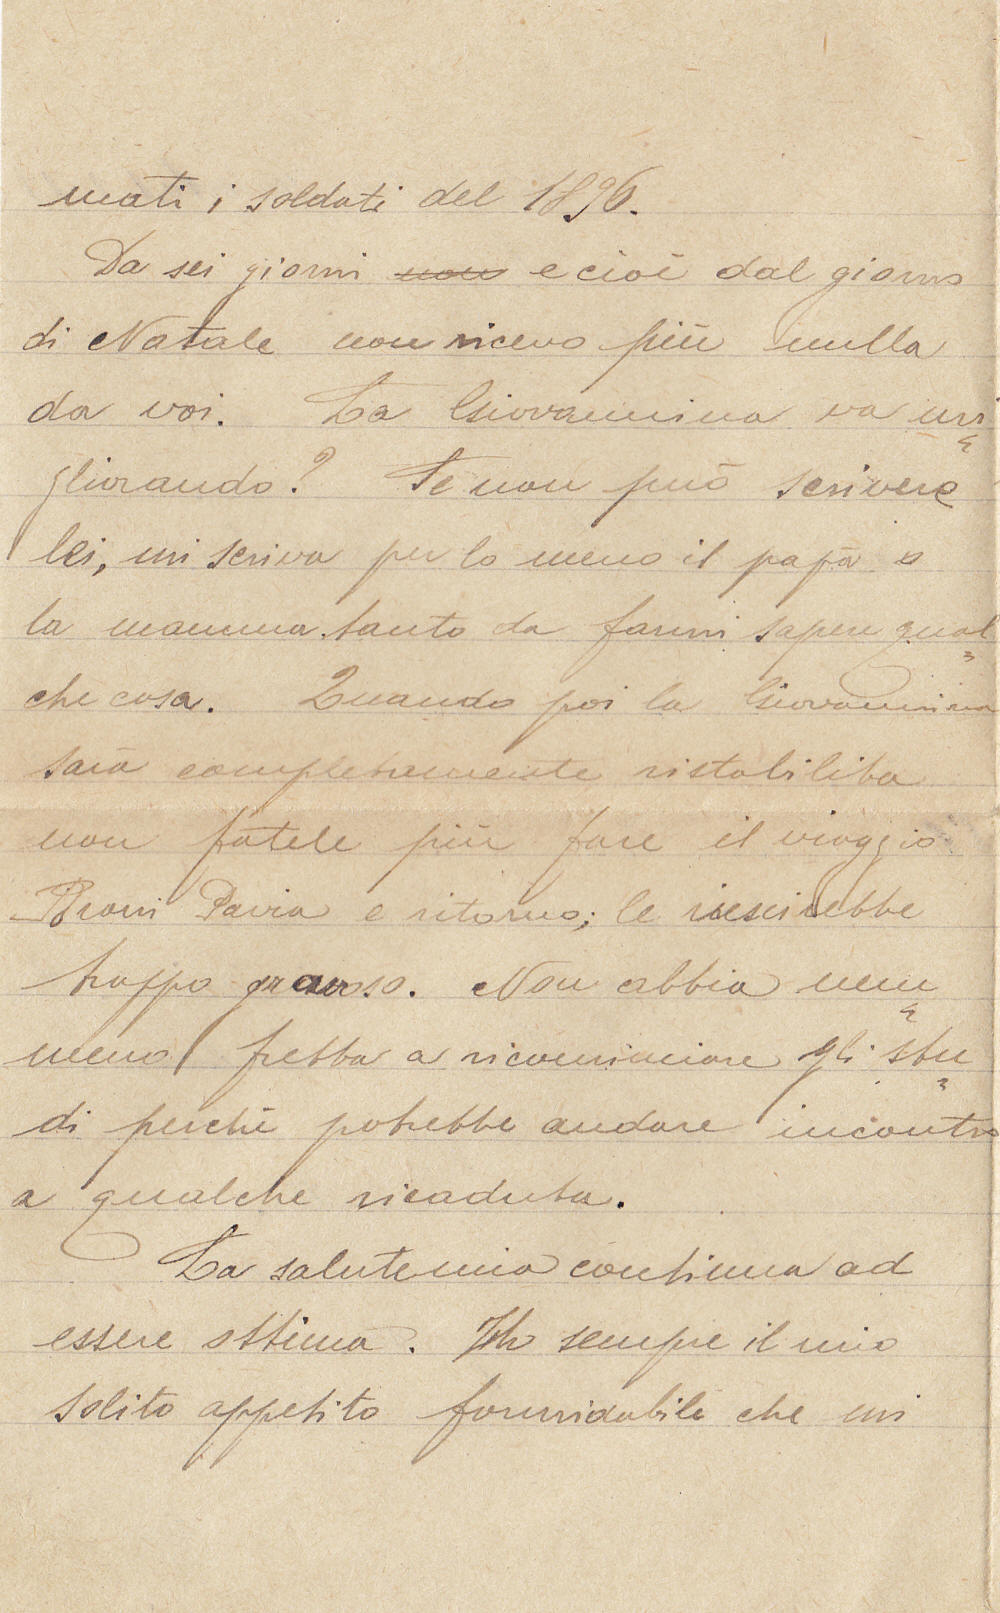 mati i soldati del 1896.
Da sei giorni non e cioè dal giorno
di Natale non ricevo più nulla
da voi. La Giovannina va mi=
gliorando? Se non può scrivere
lei, mi scriva per lo meno il papà o
la mamma tanto da farmi sapere qual=
che cosa. Quando poi la Giovannina
sarà completamente ristabilita
non fatele più fare il viaggio
Broni Pavia e ritorno; le riescirebbe
troppo gravoso. Non abbia nem=
meno fretta a ricominciare gli stu=
di perchè potrebbe andare incontro
a qualche ricaduta.
La salute mia continua ad
essere ottima. Ho sempre il mio
solito appetito formidabile che mi